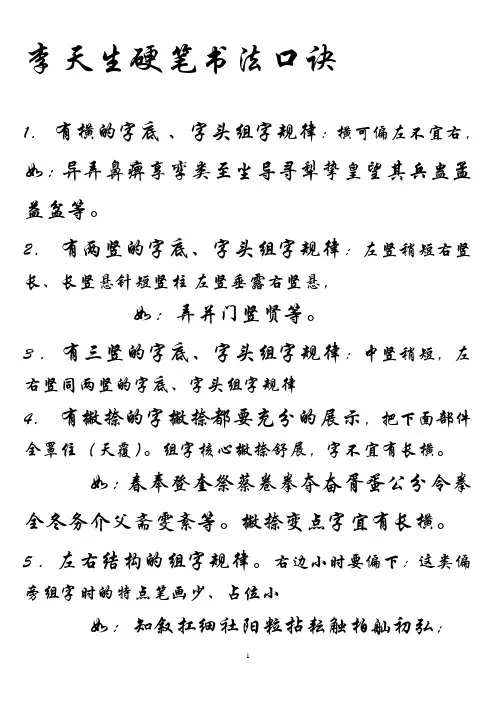 李天生硬笔书法口诀
1. 有横的字底、字头组字规律：横可偏左不宜右，
如：异弄鼻痹享孪类至尘导寻犁挚皇望其兵蛊孟
益盆等。
2. 有两竖的字底、字头组字规律：左竖稍短右竖
长、长竖悬针短竖柱 左竖垂露右竖悬，
如：弄并门竖贤等。
3．有三竖的字底、字头组字规律：中竖稍短，左
右竖同两竖的字底、字头组字规律
4. 有撇捺的字撇捺都要充分的展示，把下面部件
全罩住（天覆）。组字核心撇捺舒展，字不宜有长横。
如：春奉登奎祭蔡卷拳夺奋胥蛋公分令拳
全冬务介父斋雯紊等。撇捺变点字宜有长横。
5．左右结构的组字规律。右边小时要偏下：这类偏
旁组字时的特点笔画少、占位小
如：知叙扛细社阳粒拈耘触柏舢初弘；
1